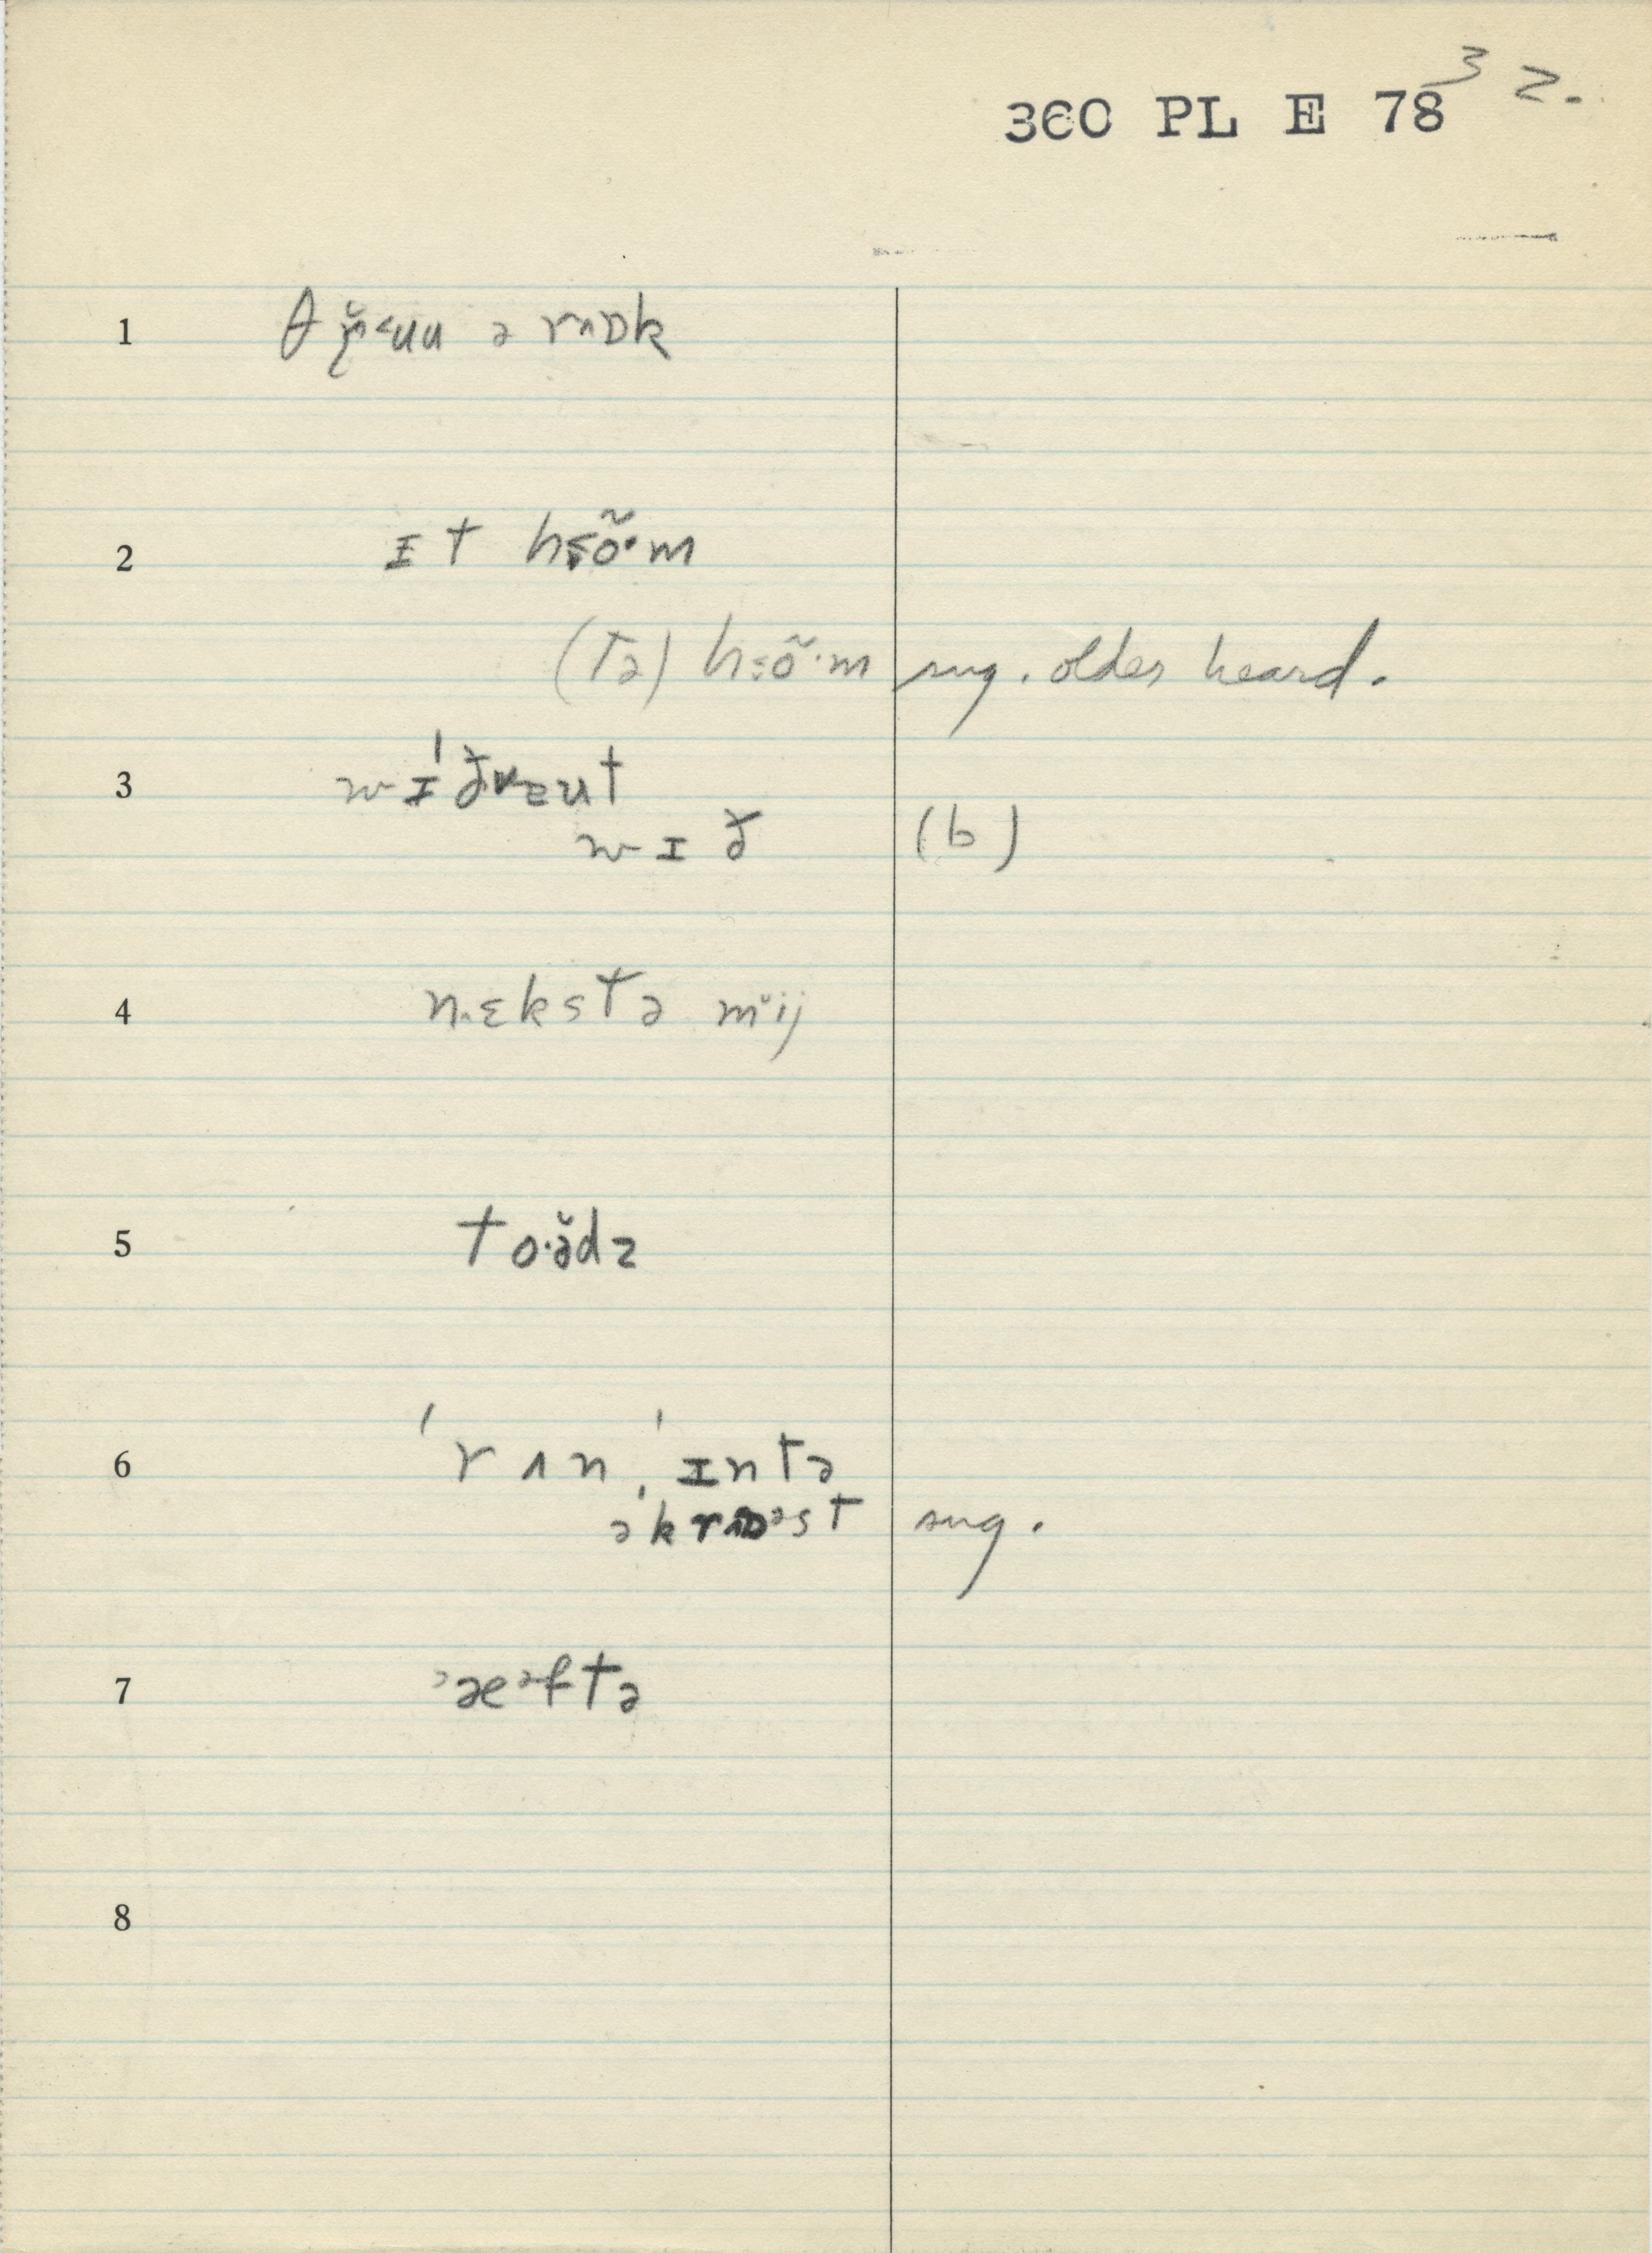 360 PL E 78 3 2.
1 θ ɚ̆˂ʉu ə rᴧɒk
2 ɪt hɛõ·m
(tə) hɛõ·m sug. older heard.
3 wɪ́ðɐᴇut
wɪð (b)
4 nɛkstə mˇij
5 to·ə̆dz
6 ˈrʌn ˈɪntə
əˈkrɒəst sug.
7 ᵊæᵊftə
8